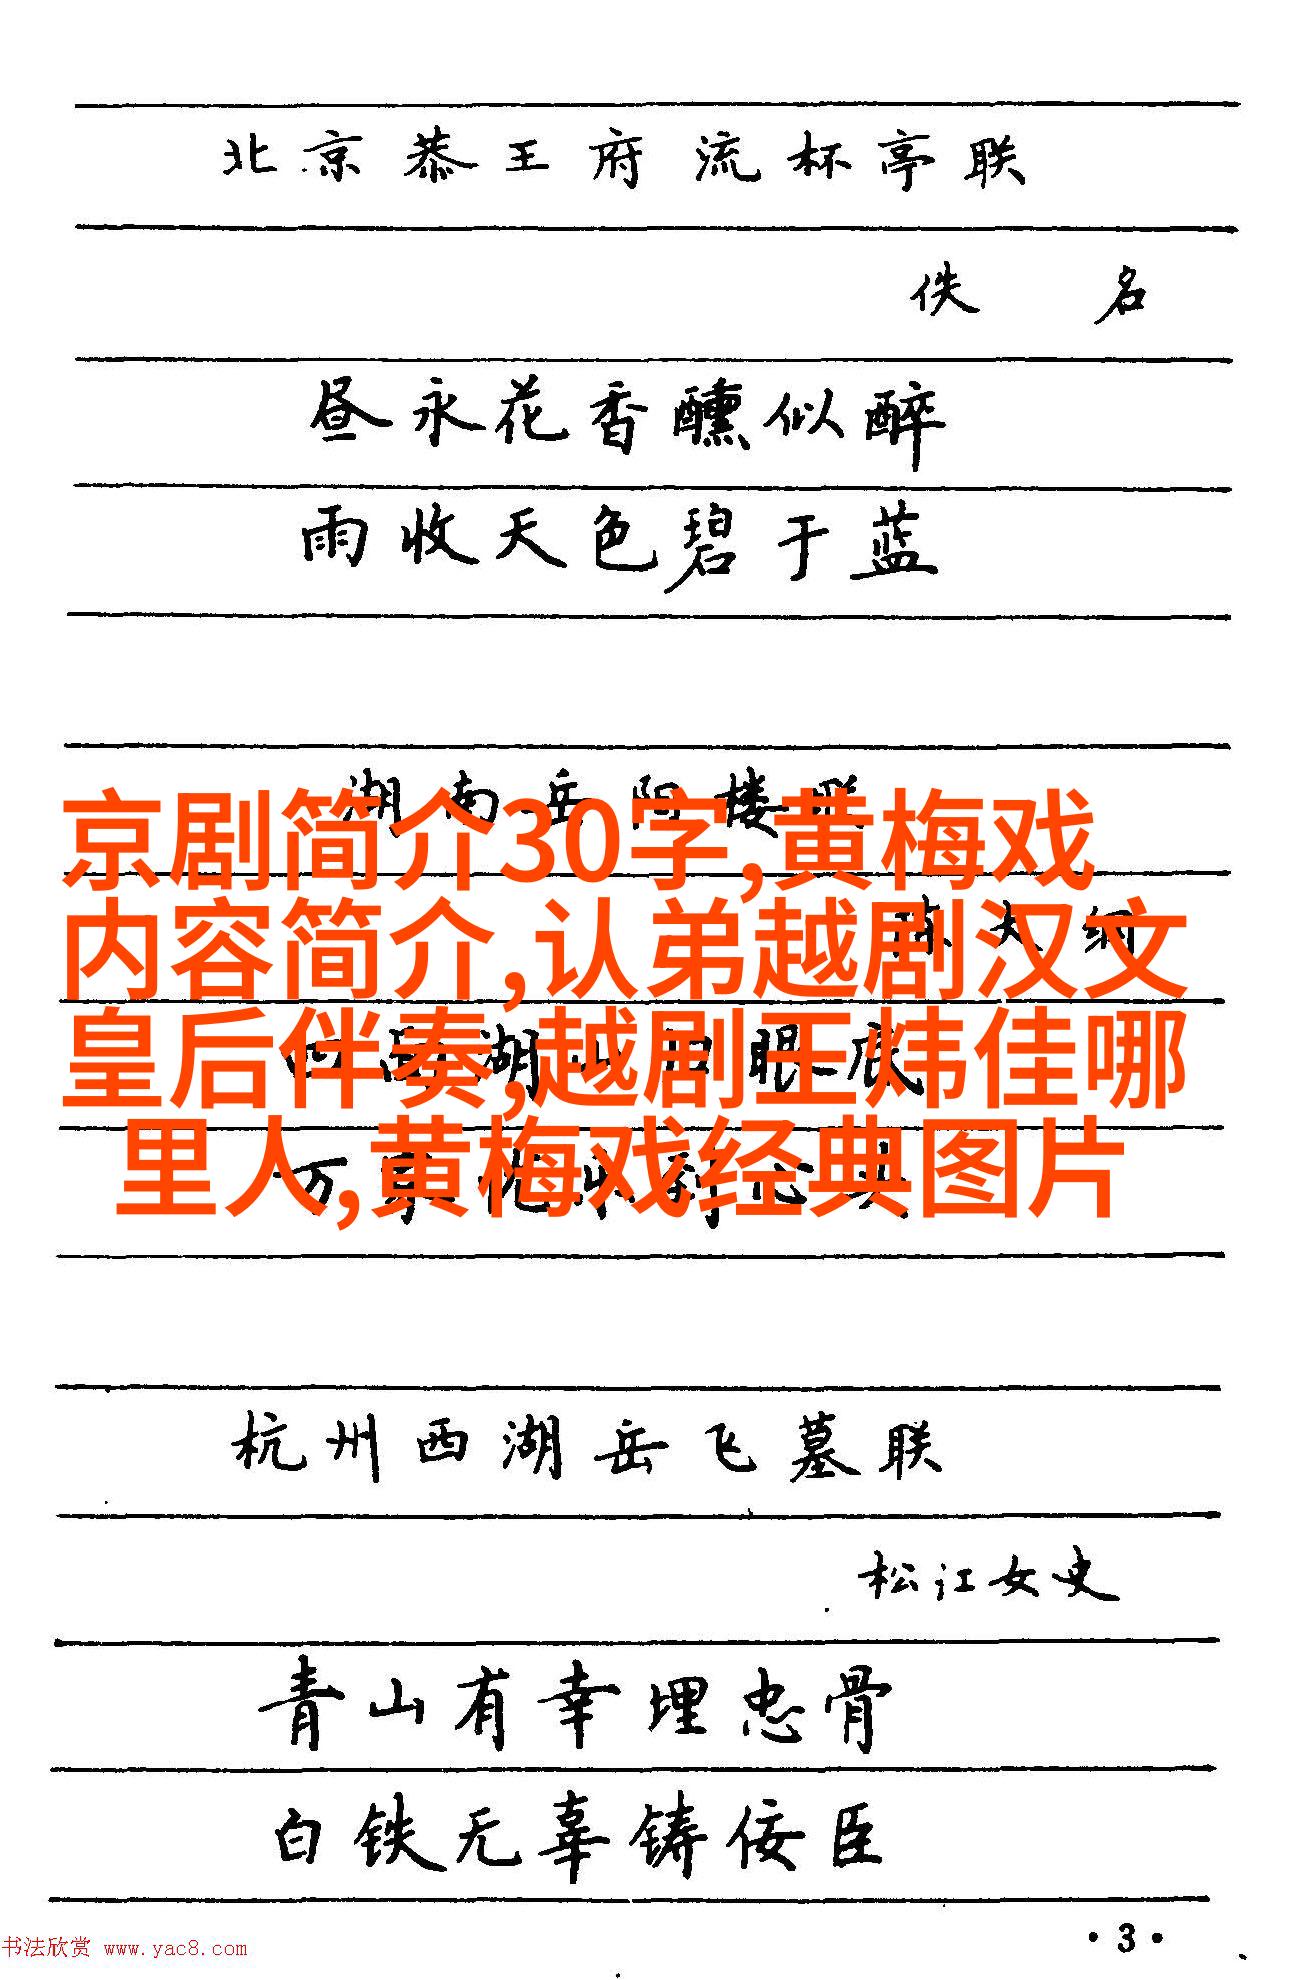 北京恭王府流杯亭联
佚名
昼永花香醺似醉
雨收天色碧于蓝
湖南岳阳楼联
京剧简介30字,黄梅戏
大纲
内容简介,认弟越剧汉文
湖 眼底
皇后伴奏,越剧王炜佳哪
万
里人,黄梅戏经典图片
杭州西湖岳飞墓联
松江女史
青山有幸埋忠骨
白铁无辜铸佞臣
·3·
书法欣赏 www.yac8.com